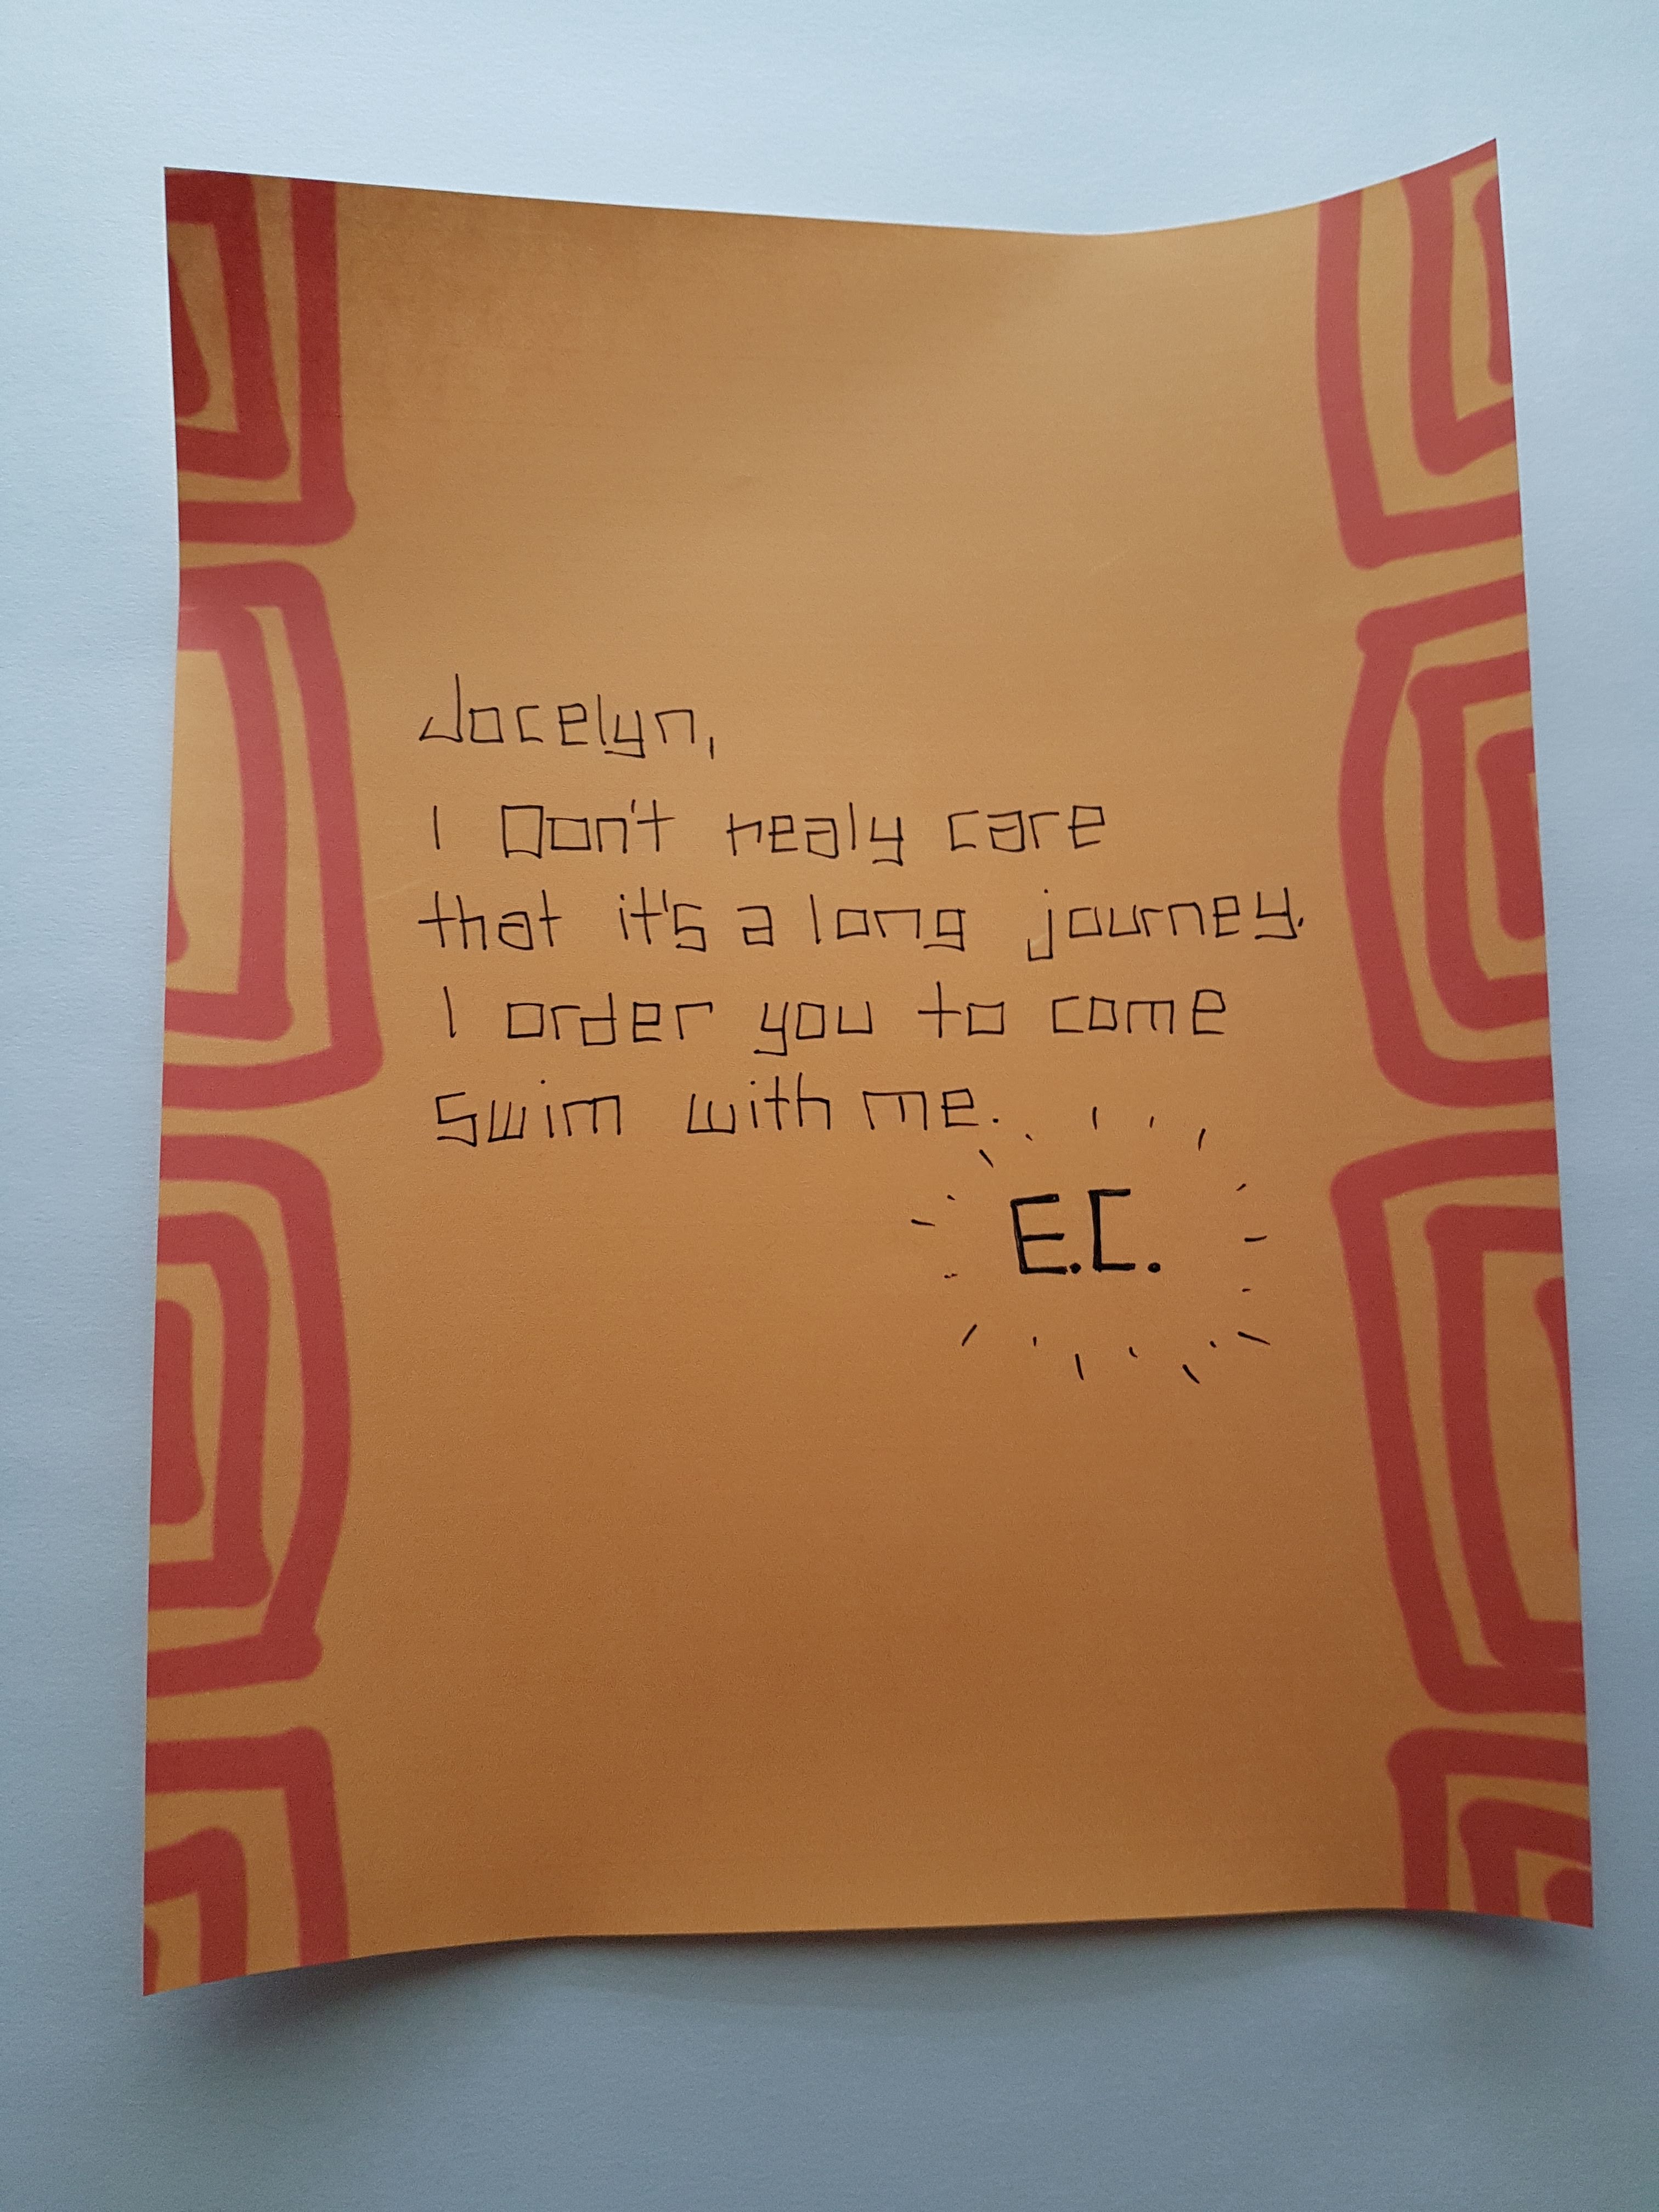 Jocelyn,
I Don't realy care
that it's a long journey.
I order you to come
Swim with me.
E.C.